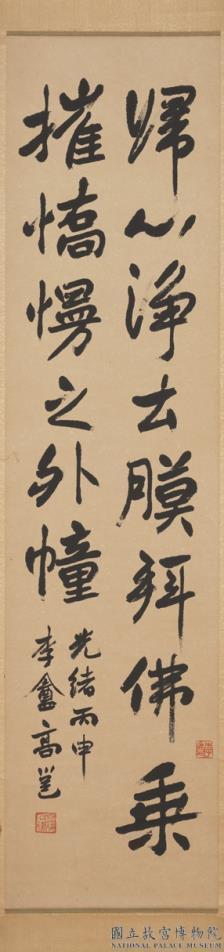 歸心淨土膜拜佛乘
摧憍慢之外幢
光緒丙申
李盦高邕
國立故宮博物院
NATIONAL PALACE MUSEUM